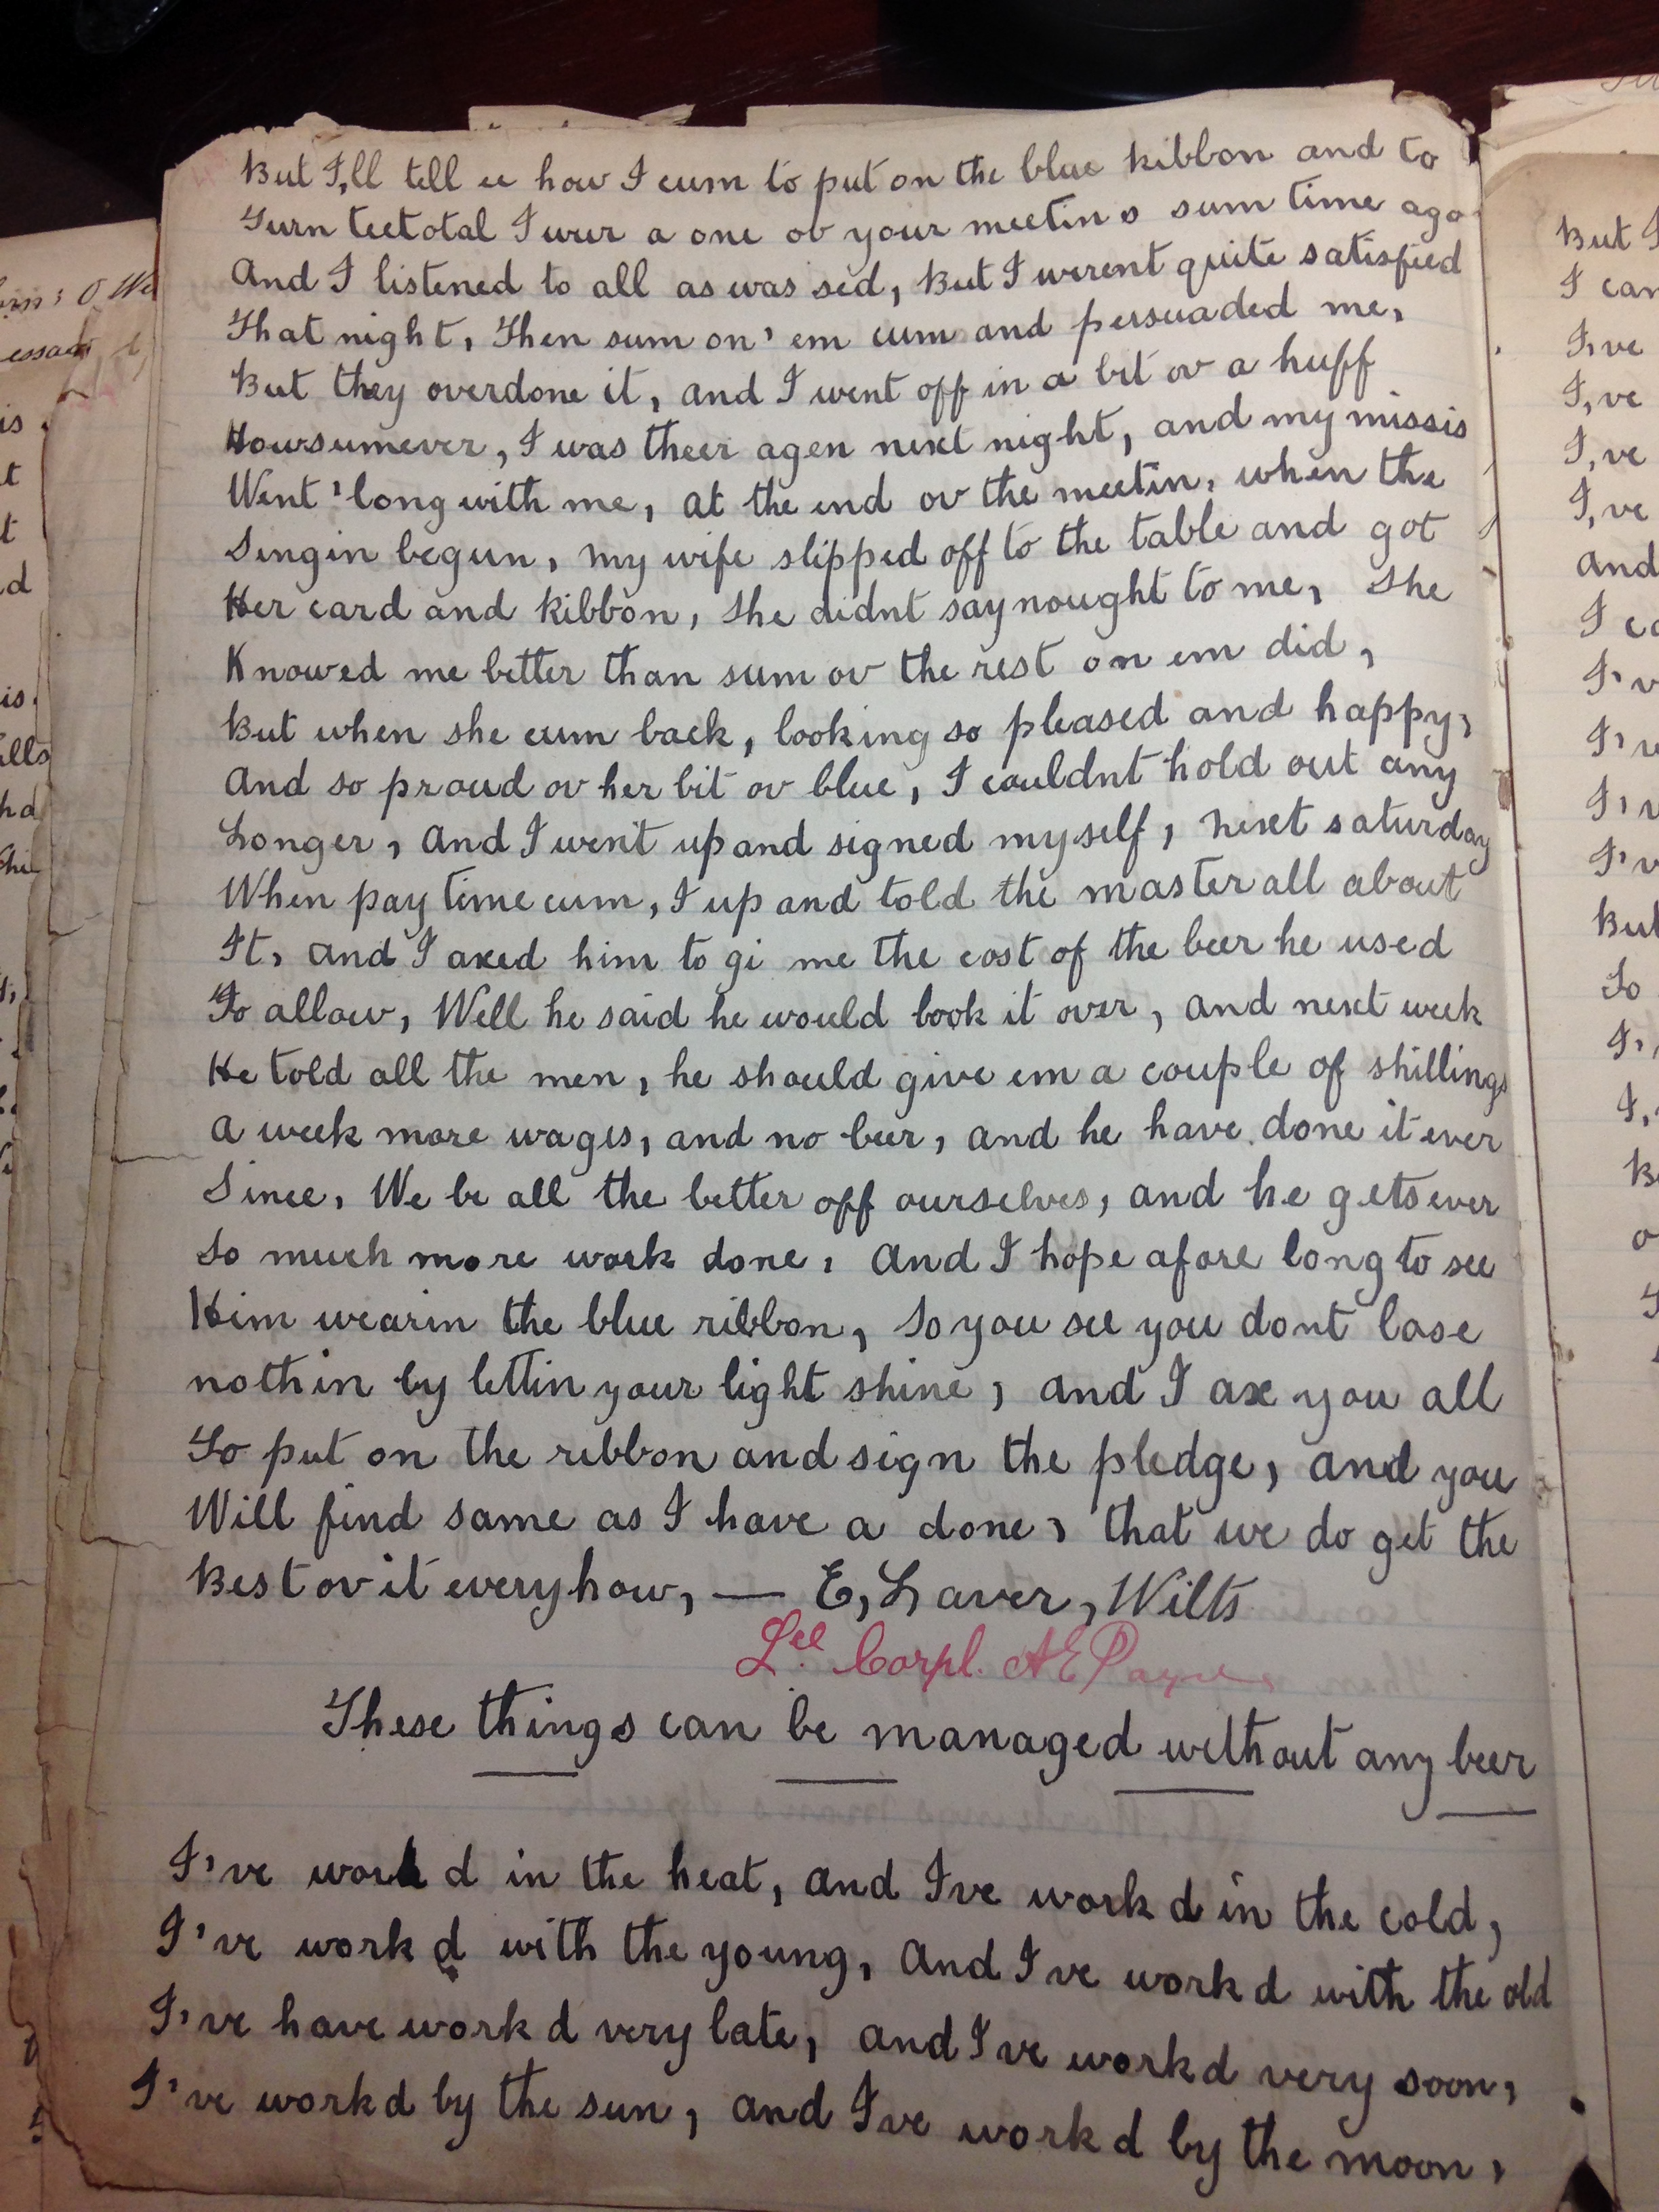 But I,ll tell ee how I cum to put on the blue Ribbon and to
Turn teetotal I wur a one ov your meetins sum time ago
And I listened to all as was sed, But I werent quite satisfied
That night, Then sum on' em cum and persuaded me,
But they overdone it, and I went off in a bit ov a huff
Howsumever, I was theer agen next night, and my missis
Went 'long with me, at the end ov the meetin, when the
Singin begun, my wife slipped off to the table and got
Her card and Ribbon, She didnt say nought to me, She
Knowed me better than sum ov the rest on em did,
But when she cum back, looking so pleased and happy,
And so proud ov her bit ov blue, I couldnt hold out any
Longer, and I went up and signed myself, next saturday
When pay time cum, I up and told the master all about
It, and I axed him to gi me the cost of the beer he used
To allow, Well he said he would book it over, and next week
He told all the men, he should give em a couple of shillings
a week more wages, and no beer, and he have done it ever
Since, We be all the better off ourselves, and he gets ever
So much more work done, and I hope afore long to see
Him wearin the blue ribbon, So you see you dont lose
nothin by lettin your light shine, and I axe you all
To put on the ribbon and sign the pledge, and you
Will find same as I have a done, that we do get the
Best ov it everyhow, — E, Laver, Wilts
Lce Corpl. A E Payne
These things can be managed without any beer
I've work d in the heat, and I've work d in the cold,
I've work d with the young, and I've work d with the old
I've have work d very late, and I've work d very soon,
I've work d by the sun, and I've work d by the moon,